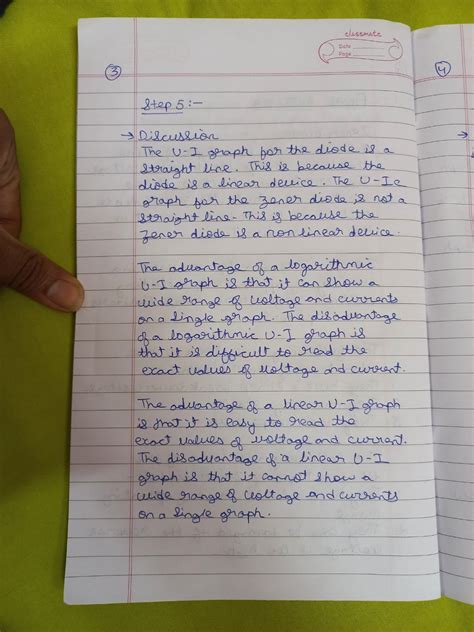 classmate
Date
Page
3
4
Step 5:-
→ Discussion
The U-I graph for the diode is a
straight line. This is because the
diode is a linear device. The U-Ic
graph for the zener diode is not a
straight line. This is because the
zener diode is a non linear device.
The advantage of a logarithmic
U-I graph is that it can show a
wide range of voltage and currents
on a single graph. The disadvantage
of a logarithmic U-I graph is
that it is difficult to read the
exact values of voltage and current.
The advantage of a linear U-I graph
is that it is easy to read the
exact values of voltage and current.
The disadvantage of a linear U-I
graph is that it cannot show a
wide range of voltage and currents
on a single graph.